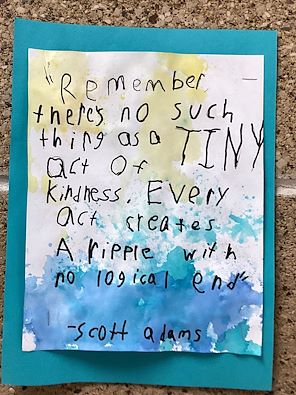 "Remember,
there's no such
thing as a TINY
act of
kindness. Every
act creates
A ripple with
no logical end"
-scott adams